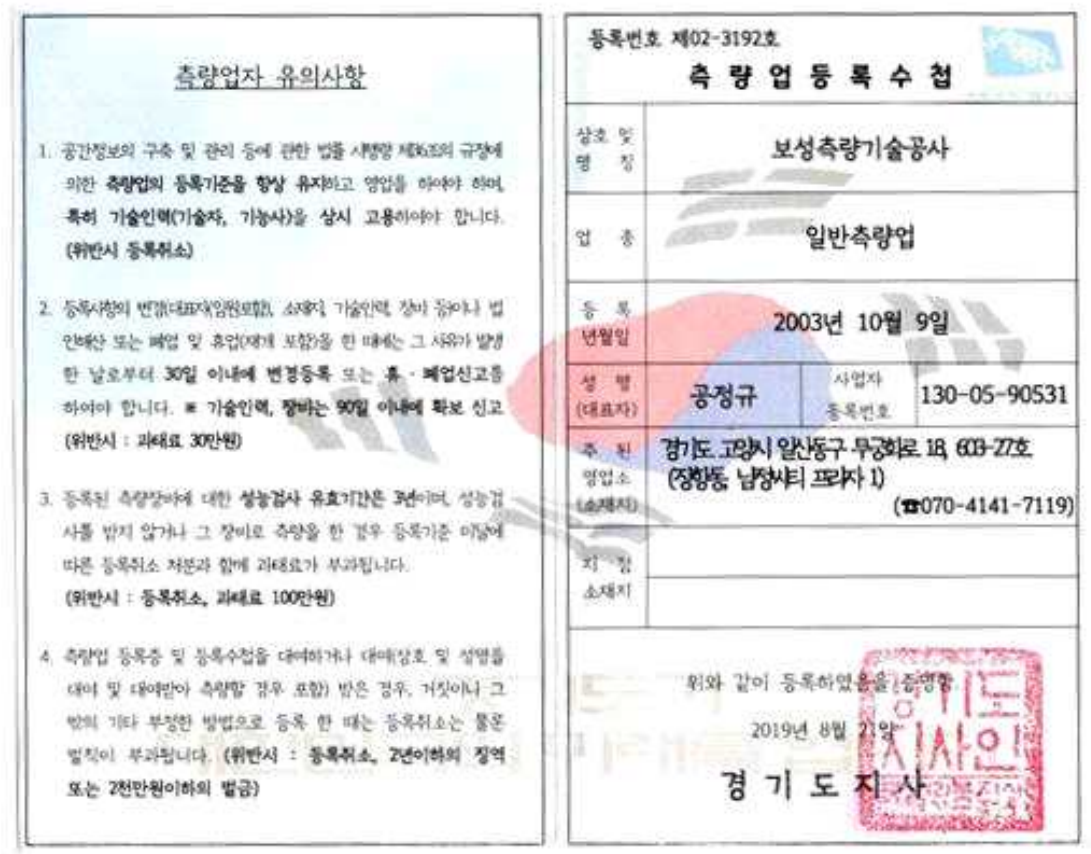 측량업자 유의사항
1. 공간정보의 구축 및 관리 등에 관한 법률 시행령 제36조의 규정에
의한 측량업의 등록기준을 항상 유지하고 영업을 하여야 하며,
특히 기술인력(기술자, 기능사)을 상시 고용하여야 합니다.
(위반시 등록취소)
2. 등록사항의 변경(대표자(임원포함), 소재지, 기술인력, 장비 등)이나 법
인해산 또는 폐업 및 휴업(재개 포함)을 한 때에는 그 사유가 발생
한 날로부터 30일 이내에 변경등록 또는 휴 · 폐업신고를
하여야 합니다. ※ 기술인력, 장비는 90일 이내에 확보 신고
(위반시 : 과태료 30만원)
3. 등록된 측량장비에 대한 성능검사 유효기간은 3년이며, 성능검
사를 받지 않거나 그 장비로 측량을 한 경우 등록기준 미달에
따른 등록취소 처분과 함께 과태료가 부과됩니다.
(위반시 : 등록취소, 과태료 100만원)
4. 측량업 등록증 및 등록수첩을 대여하거나 대여(상호 및 성명을
대여 및 대여받아 측량할 경우 포함) 받은 경우, 거짓이나 그
밖의 기타 부정한 방법으로 등록 한 때는 등록취소는 물론
벌칙이 부과됩니다. (위반시 : 등록취소, 2년이하의 징역
또는 2천만원이하의 벌금)
등록번호 제02-3192호
측량업등록수첩
상호 및
명 칭
보성측량기술공사
업 종
일반측량업
등 록
년월일
2003년 10월 9일
성 명
(대표자)
공정규
사업자
등록번호
130-05-90531
주 된
영업소
(소재지)
경기도 고양시 일산동구 무궁화로 18, 603-27호
(장항동, 남정씨티 프라자 1)
(☎070-4141-7119)
지 점
소재지
위와 같이 등록하였음을 증명함.
2019년 8월 21일
경기도지사
경기도
지사인